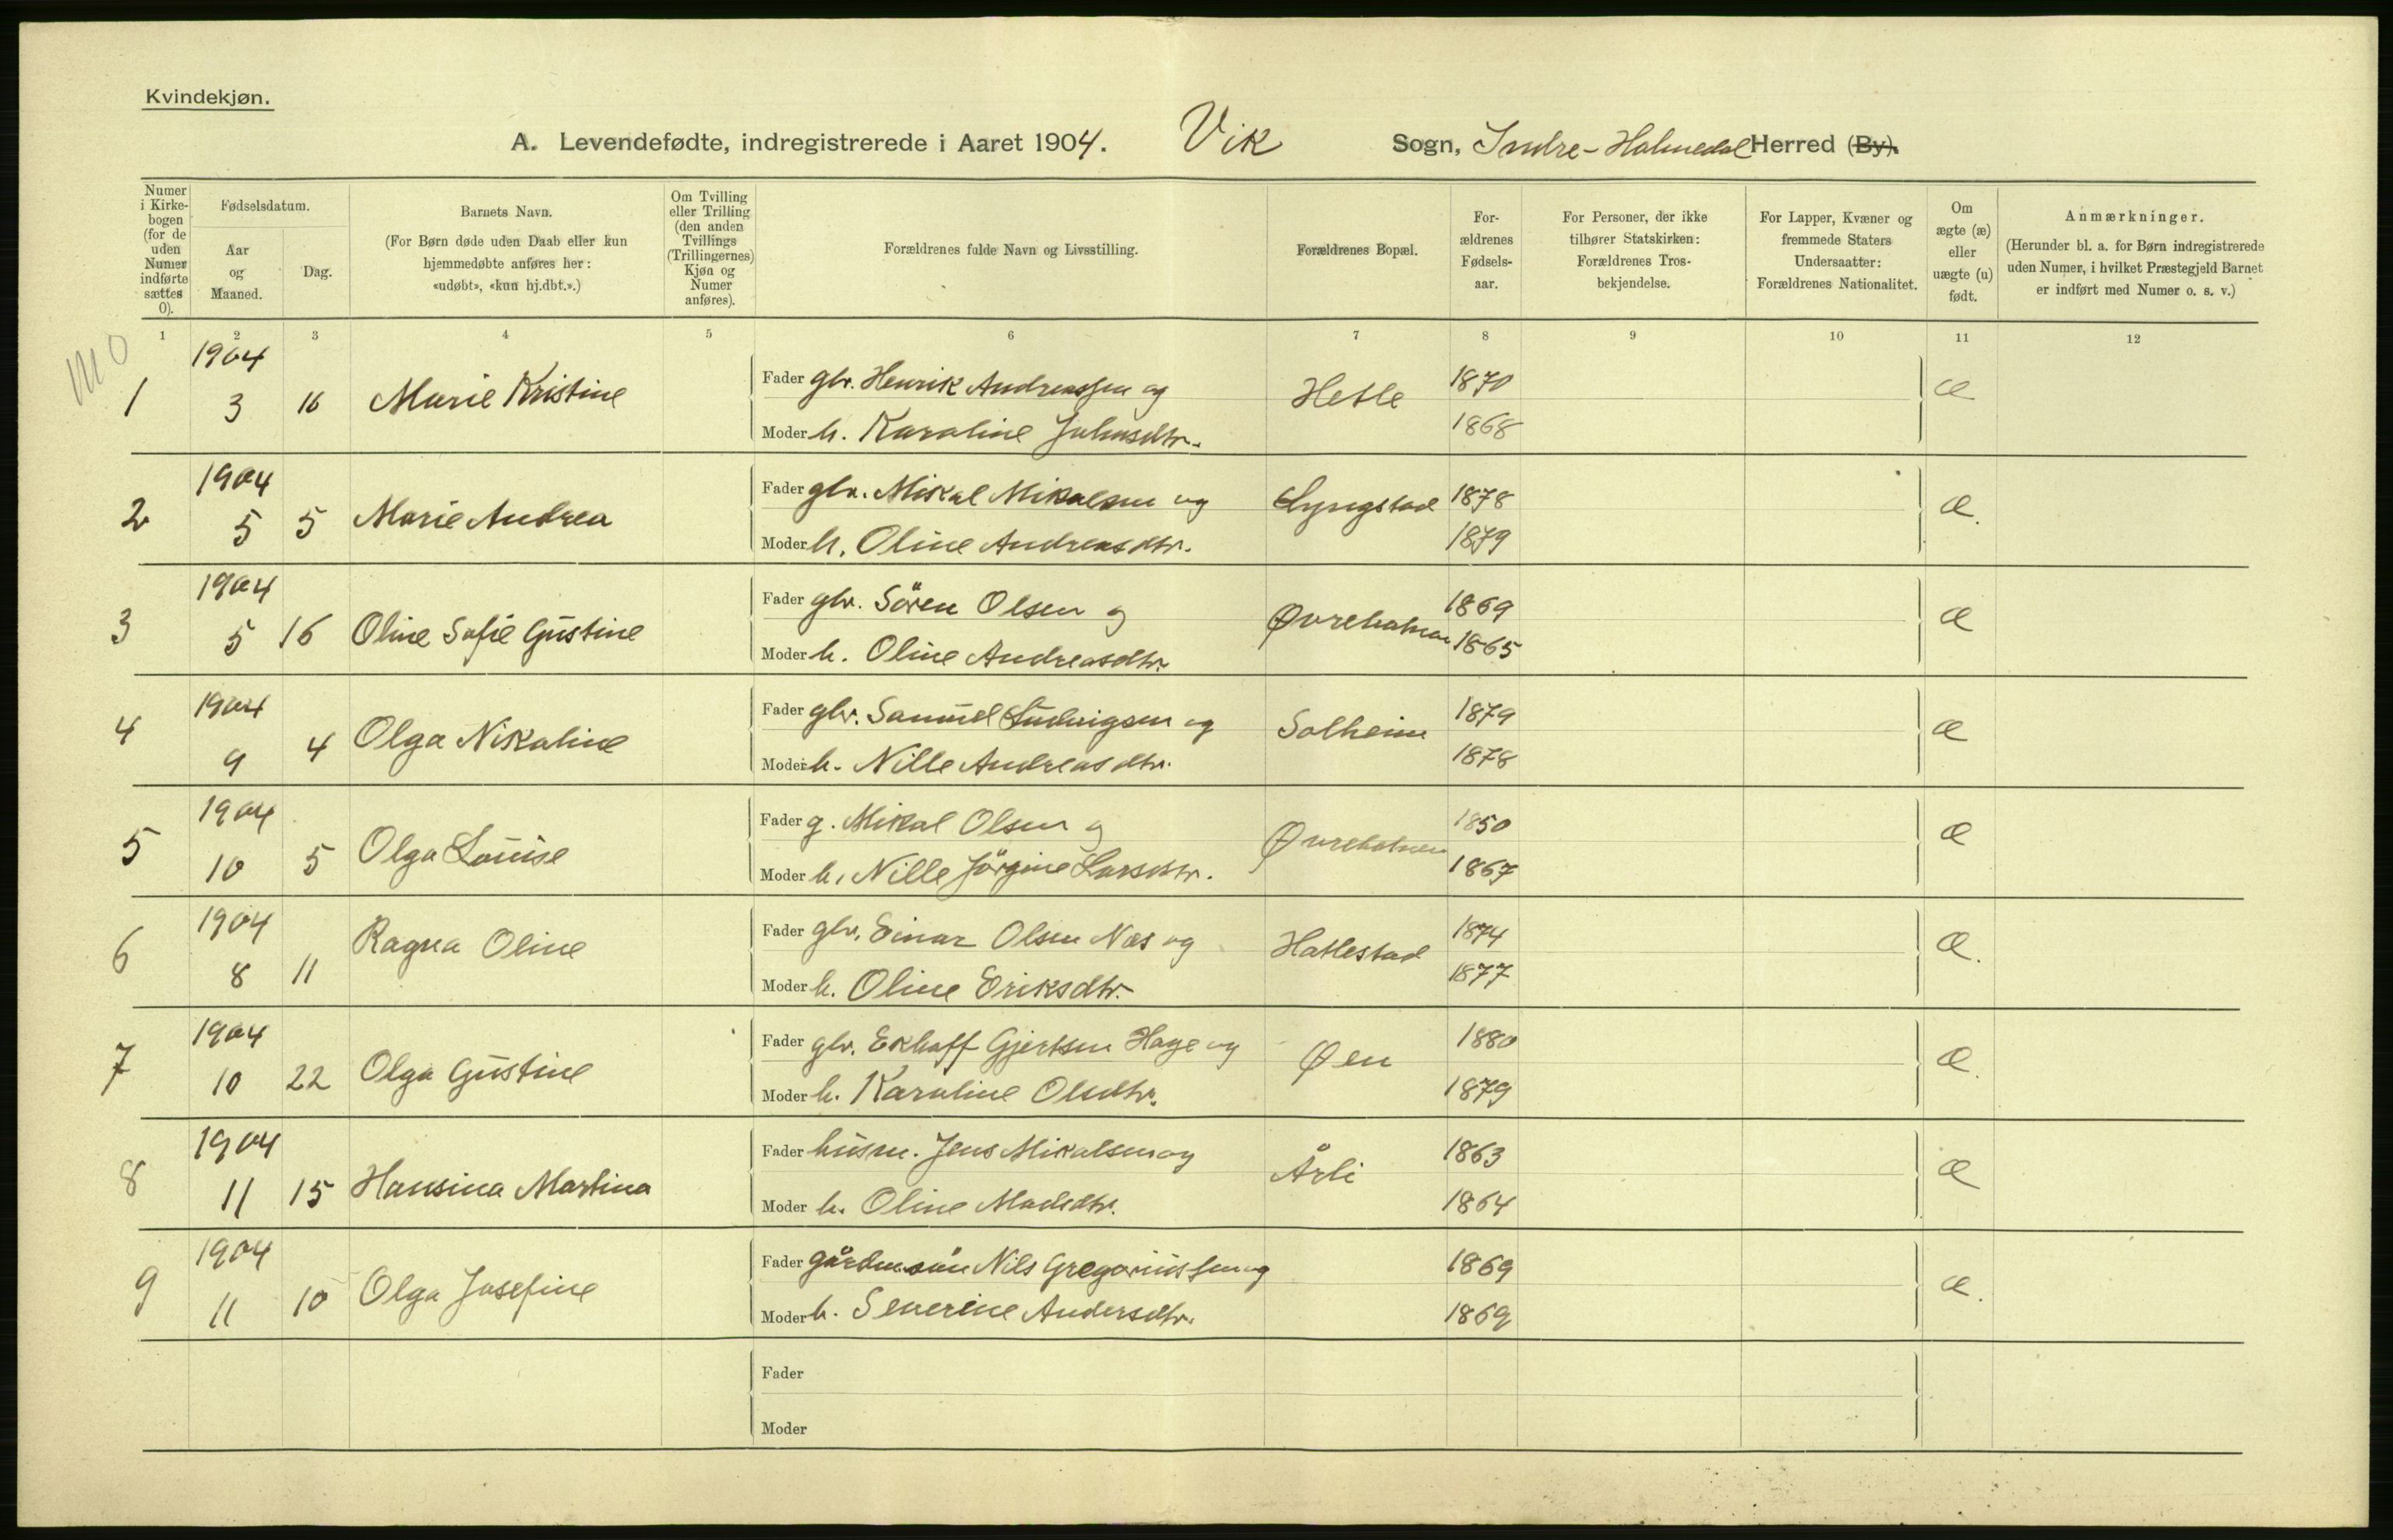 Kvindekjøn.
A. Levendefødte, indregistrerede i Aaret 1904. Vik Sogn, Indre-Holmedal Herred (By).
Numer i Kirke-bogen (for de uden Numer indførte sættes 0).
Fødselsdatum.
Aar og Maaned.
Dag.
Barnets Navn.
(For Børn døde uden Daab eller kun hjemmedøbte anføres her: «udøbt», «kun hj.dbt.».)
Om Tvilling eller Trilling (den anden Tvillings (Trillingernes) Kjøn og Numer anføres).
Forældrenes fulde Navn og Livsstilling.
Forældrenes Bopæl.
For-ældrenes Fødsels-aar.
For Personer, der ikke tilhører Statskirken: Forældrenes Tros-bekjendelse.
For Lapper, Kvæner og fremmede Staters Undersaatter: Forældrenes Nationalitet.
Om ægte (æ) eller uægte (u) født.
Anmærkninger.
(Herunder bl. a. for Børn indregistrerede uden Numer, i hvilket Præstegjeld Barnet er indført med Numer o. s. v.)
1 2 3 4 5 6 7 8 9 10 11 12
1904
1 3 16 Marie Kristine
Fader gbr. Henrik Andreassen og Hetle 1870 æ
Moder h. Karoline Johnsdtr. 1868
1904
2 5 5 Marie Andrea
Fader gbr. Mikal Mikalsen og Lyngstad 1878 æ.
Moder h. Oline Andreasdtr. 1879
1904
3 5 16 Oline Sofie Gustine
Fader gbr. Sören Olsen og 1869 æ
Moder h. Oline Andreasdtr. 1865
1904
4 9 4 Olga Nikoline
Fader gbr. Samuel Ludvigsen og Solheim 1879 æ
Moder h. Nille Andreasdtr. 1878
1904
5 10 5 Olga Louise
Fader g. Mikal Olsen og 1850 æ
Moder h. Nille Jörgine Larsdtr. 1867
1904
6 8 11 Ragna Oline
Fader gbr. Einar Olsen Næs og Hatlestad 1874 æ.
Moder h. Oline Eriksdtr. 1877
1904
7 10 22 Olga Gustine
Fader gbr. Ekhoff Gjertsen Hage og Øen 1880 æ.
Moder h. Karoline Olsdtr. 1879
1904
8 11 15 Hansina Martina
Fader husm. Jens Mikalsen og Årli 1863 æ
Moder h. Oline Madsdtr. 1864
1904
9 11 10 Olga Josefine
Fader Nils Gregoriussen og 1869 æ.
Moder h. Severine Andersdtr. 1869
Fader
Moder